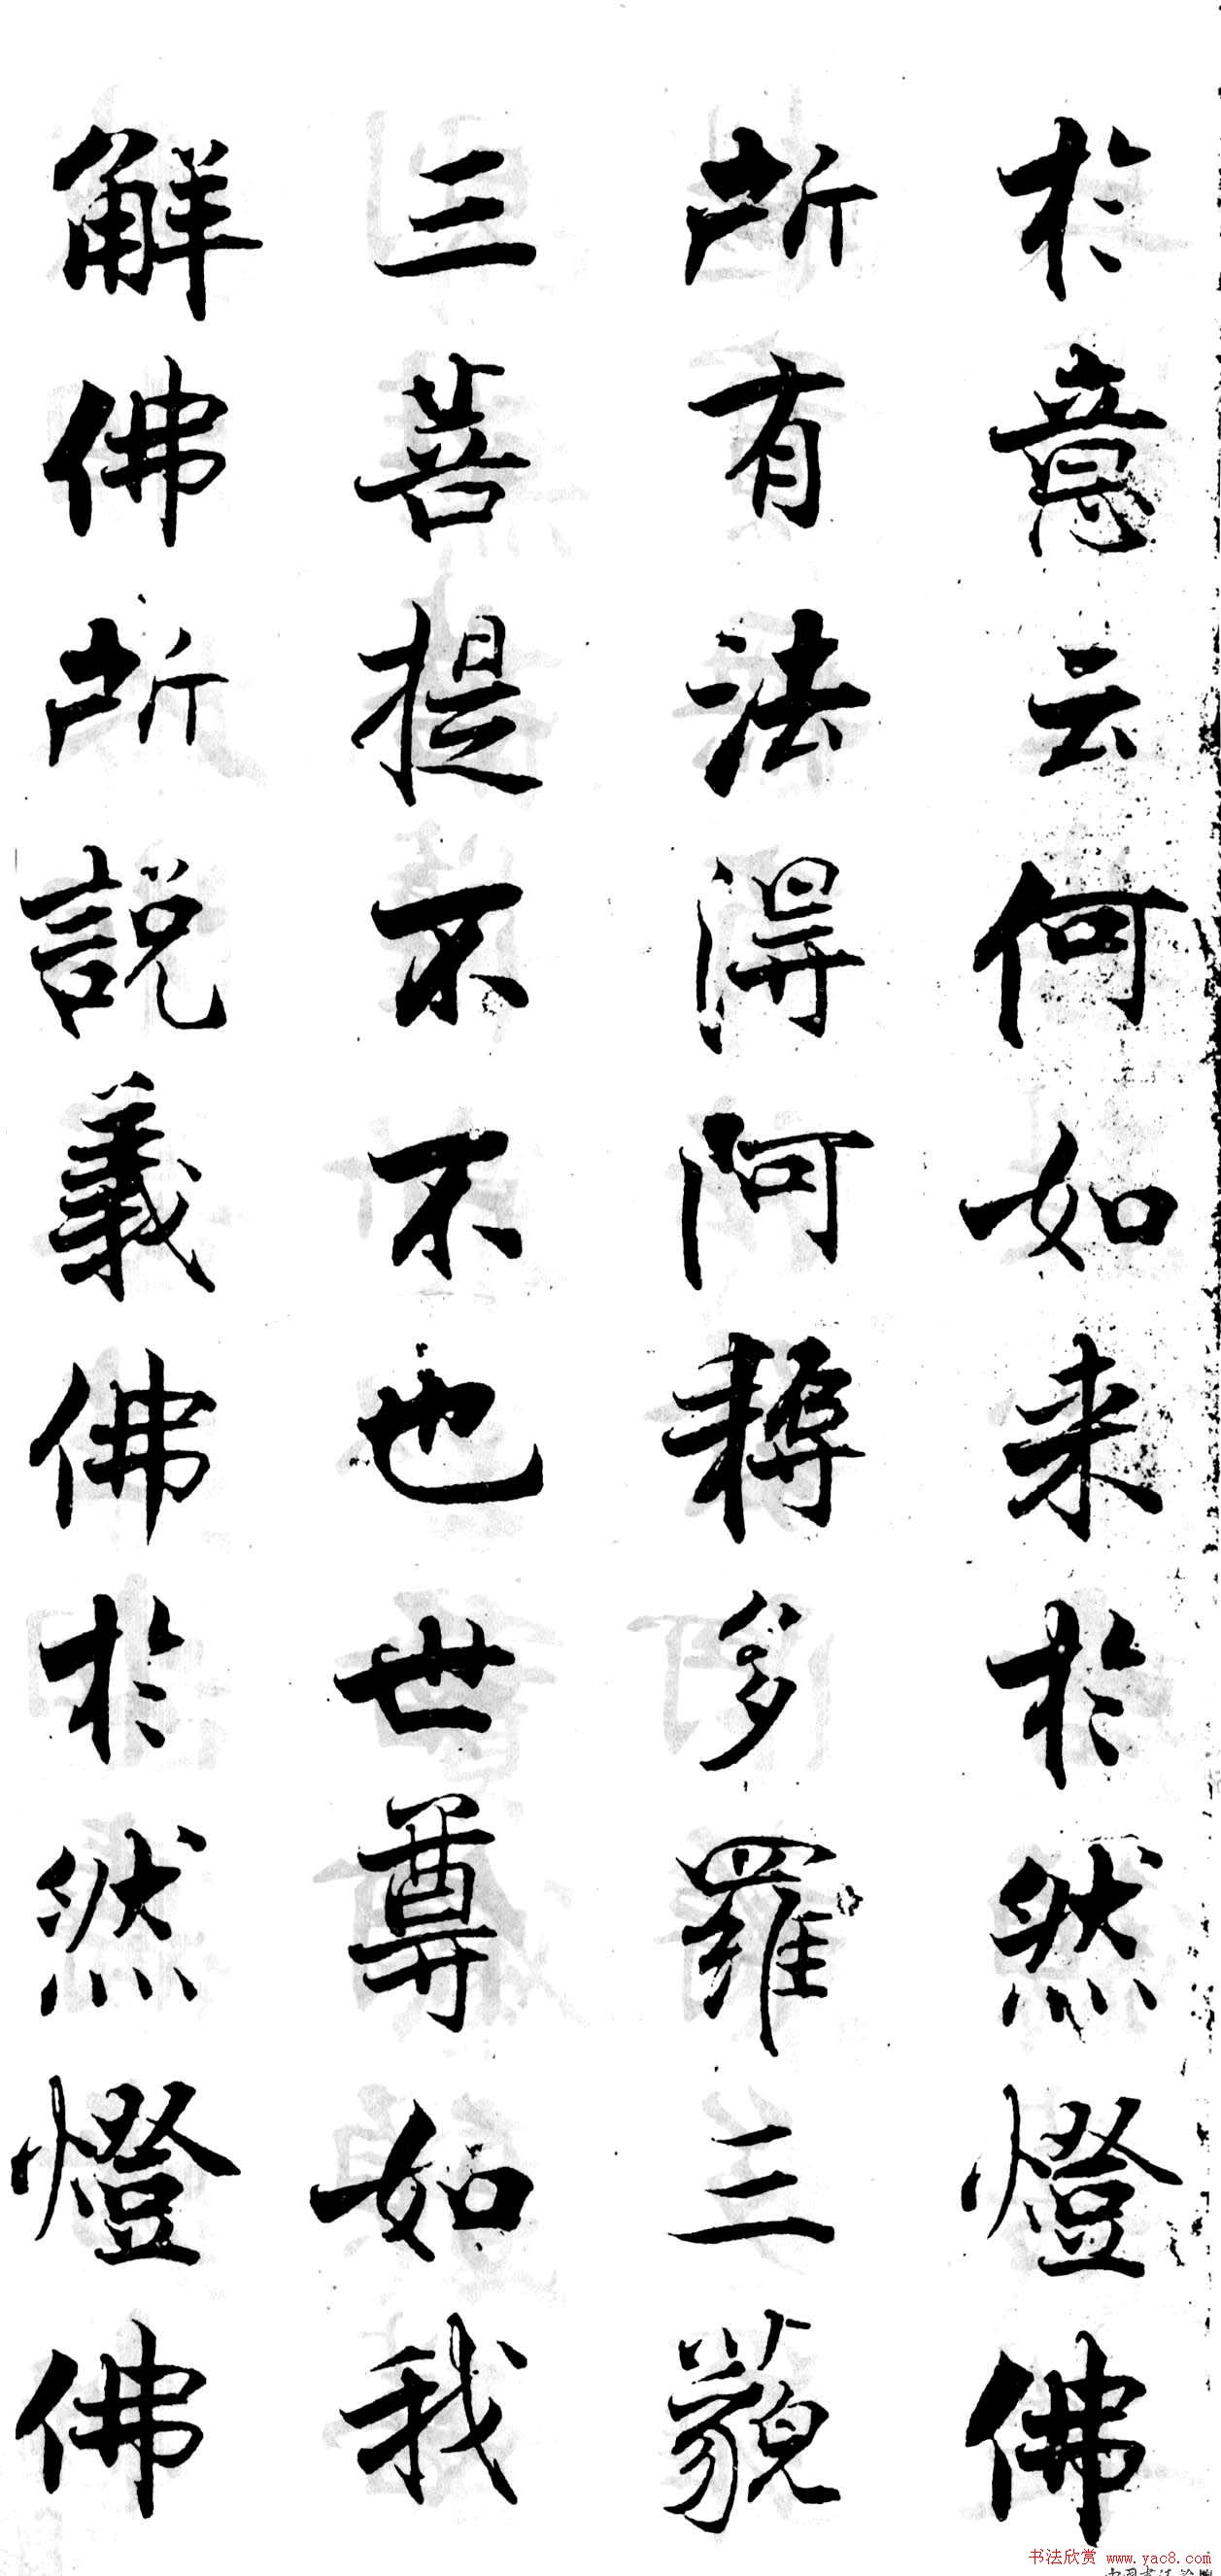 於意云何如来於然燈佛
所有法得阿耨多羅三藐
三菩提不不也世尊如我
解佛所說義佛於然燈佛
书法欣赏 www.yac8.com